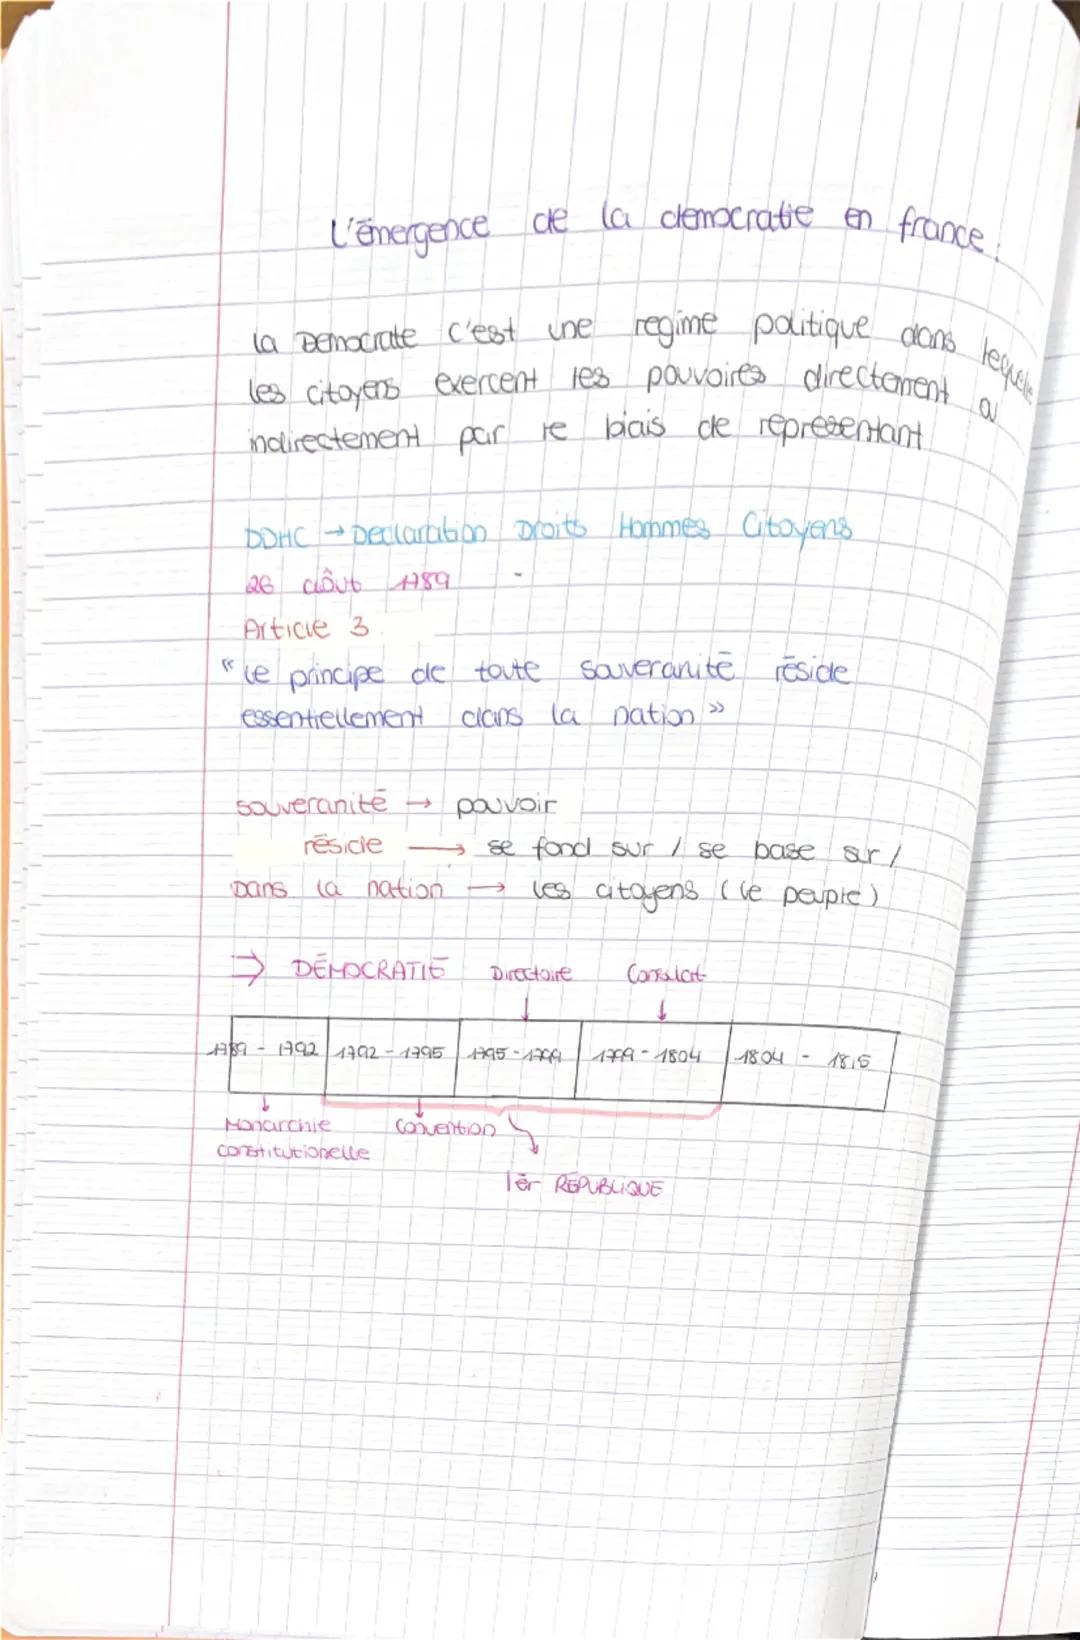 L'émergence de la democratie en france.
la Democratie c'est une regime politique dans lequele
les citoyens exercent les pouvoires directement ou
indirectement par le biais de representant
DDHC → Declaration Droits Hommes Citoyens
26 août 1789
Article 3.
« Le principe de toute souveranité réside
essentiellement dans la nation »
souveranité → pouvoir
réside → se fond sur / se base sur /
Dans la nation → les citoyens (le peuple)
⇒ DÉMOCRATIE Directoire Consulat
1789 - 1792 1792 - 1795 1795 - 1799 1799 - 1804 1804 - 1815
Monarchie Convention
constitutionelle
1èr RÉPUBLIQUE